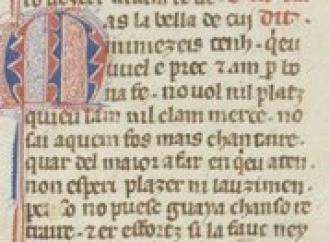 as la bella de cui
mi mezeis tenh. q̄eu
uuel e prec Zam ꝑ lo
na fe. no uol nil platz
quieu lam nil clam merce. no
fai aquem fos mais chantaire.
quar del maior afar en q̄eu aten
non esper plazer ni lauzimen
no puesc guaya chanso re
traire. Z er esfortz si la fauc ney